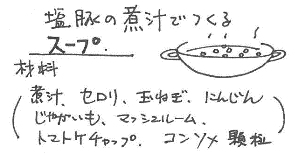 塩豚の煮汁でつくる
スープ.
材料
(煮汁、セロリ、玉ねぎ、にんじん
じゃがいも、マッシュルーム、
トマトケチャップ、コンソメ顆粒)